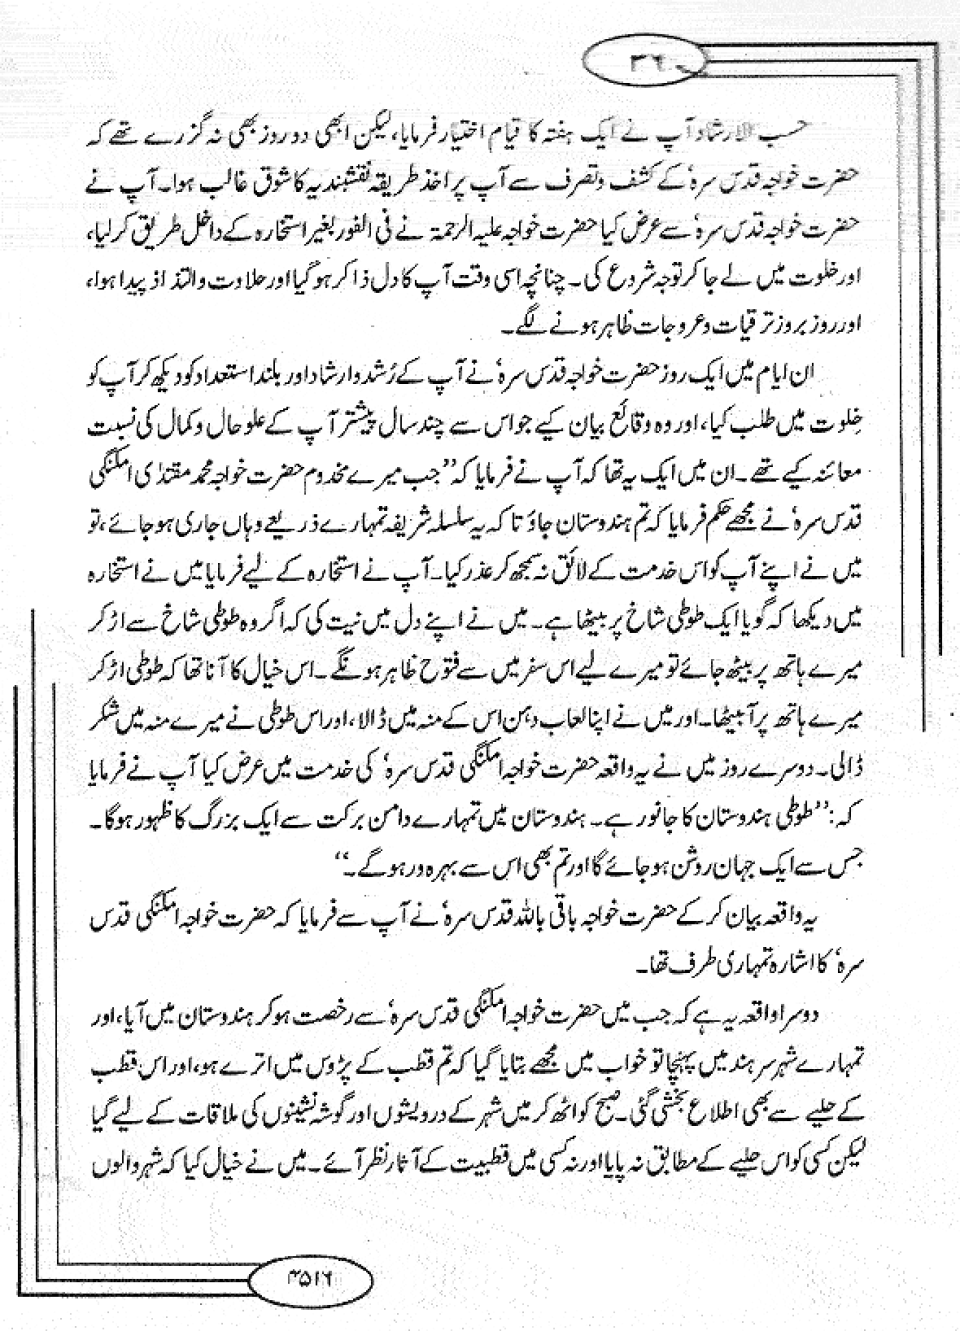 ۳۶
حسب الارشاد آپ نے ایک ہفتہ کا قیام اختیار فرمایا، لیکن ابھی دو روز بھی نہ گزرے تھے کہ
حضرت خواجہ قدس سرہٗ کے کشف و تصرف سے آپ پر اخذ طریقہ نقشبندیہ کا شوق غالب ہوا۔ آپ نے
حضرت خواجہ قدس سرہٗ سے عرض کیا حضرت خواجہ علیہ الرحمۃ نے فی الفور بغیر استخارہ کے داخل طریق کر لیا،
اور خلوت میں لے جا کر توجہ شروع کی۔ چنانچہ اسی وقت آپ کا دل ذاکر ہو گیا اور حلاوت والتذاذ پیدا ہوا،
اور روز بروز ترقیات و عروجات ظاہر ہونے لگے۔
ان ایام میں ایک روز حضرت خواجہ قدس سرہٗ نے آپ کے رُشد و ارشاد اور بلند استعداد کو دیکھ کر آپ کو
خلوت میں طلب کیا، اور وہ وقائع بیان کیے جو اس سے چند سال پیشتر آپ کے علو حال و کمال کی نسبت
معائنہ کیے تھے۔ ان میں ایک یہ تھا کہ آپ نے فرمایا کہ ’’جب میرے مخدوم حضرت خواجہ محمد مقتدٰی امکنگی
قدس سرہٗ نے مجھے حکم فرمایا کہ تم ہندوستان جاؤ تا کہ یہ سلسلہ شریفہ تمہارے ذریعے وہاں جاری ہو جائے، تو
میں نے اپنے آپ کو اس خدمت کے لائق نہ سمجھ کر عذر کیا۔ آپ نے استخارہ کے لیے فرمایا میں نے استخارہ
میں دیکھا کہ گویا ایک طوطی شاخ پر بیٹھا ہے۔ میں نے اپنے دل میں نیت کی کہ اگر وہ طوطی شاخ سے اڑ کر
میرے ہاتھ پر بیٹھ جائے تو میرے لیے اس سفر میں سے فتوح ظاہر ہونگے۔ اس خیال کا آنا تھا کہ طوطی اڑ کر
میرے ہاتھ پر آ بیٹھا۔ اور میں نے اپنا لعاب دہن اس کے منہ میں ڈالا، اور اس طوطی نے میرے منہ میں شکر
ڈالی۔ دوسرے روز میں نے یہ واقعہ حضرت خواجہ امکنگی قدس سرہٗ کی خدمت میں عرض کیا آپ نے فرمایا
کہ: ’’طوطی ہندوستان کا جانور ہے۔ ہندوستان میں تمہارے دامن برکت سے ایک بزرگ کا ظہور ہوگا۔
جس سے ایک جہان روشن ہو جائے گا اور تم بھی اس سے بہرہ ور ہو گے۔‘‘
یہ واقعہ بیان کر کے حضرت خواجہ باقی باللہ قدس سرہٗ نے آپ سے فرمایا کہ حضرت خواجہ امکنگی قدس
سرہٗ کا اشارہ تمہاری طرف تھا۔
دوسرا واقعہ یہ ہے کہ جب میں حضرت خواجہ امکنگی قدس سرہٗ سے رخصت ہو کر ہندوستان میں آیا، اور
تمہارے شہر سرہند میں پہنچا تو خواب میں مجھے بتایا گیا کہ تم قطب کے پڑوس میں اترے ہو، اور اس قطب
کے حلیے سے بھی اطلاع بخشی گئی۔ صبح کو اٹھ کر میں شہر کے درویشوں اور گوشہ نشینوں کی ملاقات کے لیے گیا
لیکن کسی کو اس حلیے کے مطابق نہ پایا اور نہ کسی میں قطبیت کے آثار نظر آئے۔ میں نے خیال کیا کہ شہر والوں
۳۵۱۶